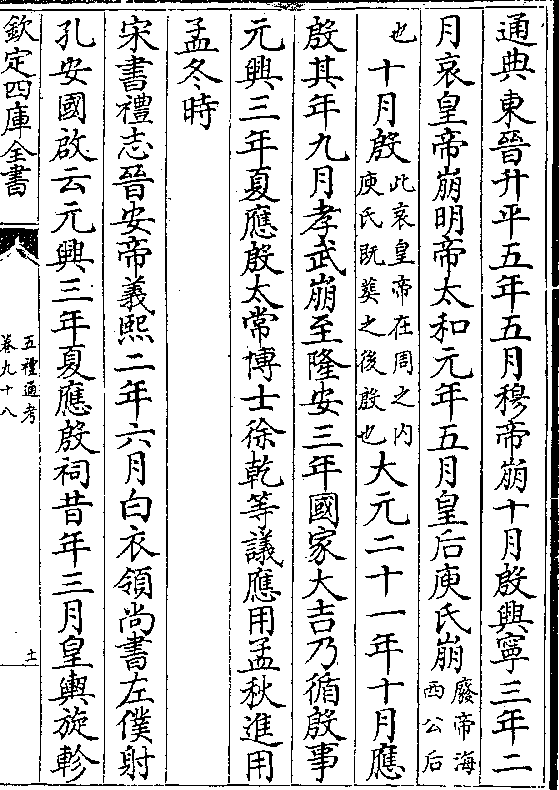 通典東晉升平五年五月穆帝崩十月殷興寧三年二
月哀皇帝崩明帝太和元年五月皇后庾氏崩廢帝海
西公后
也十月殷此哀皇帝在周之内
庾氏既葬之後殷也大元二十一年十月應
殷其年九月孝武崩至隆安三年國家大吉乃循殷事
元興三年夏應殷太常博士徐乾等議應用孟秋進用
孟冬時
宋書禮志晉安帝義熙二年六月白衣領尚書左僕射
孔安國啟云元興三年夏應殷祠昔年三月皇輿旋軫
欽定四庫全書
五禮通考
卷九十八
十一